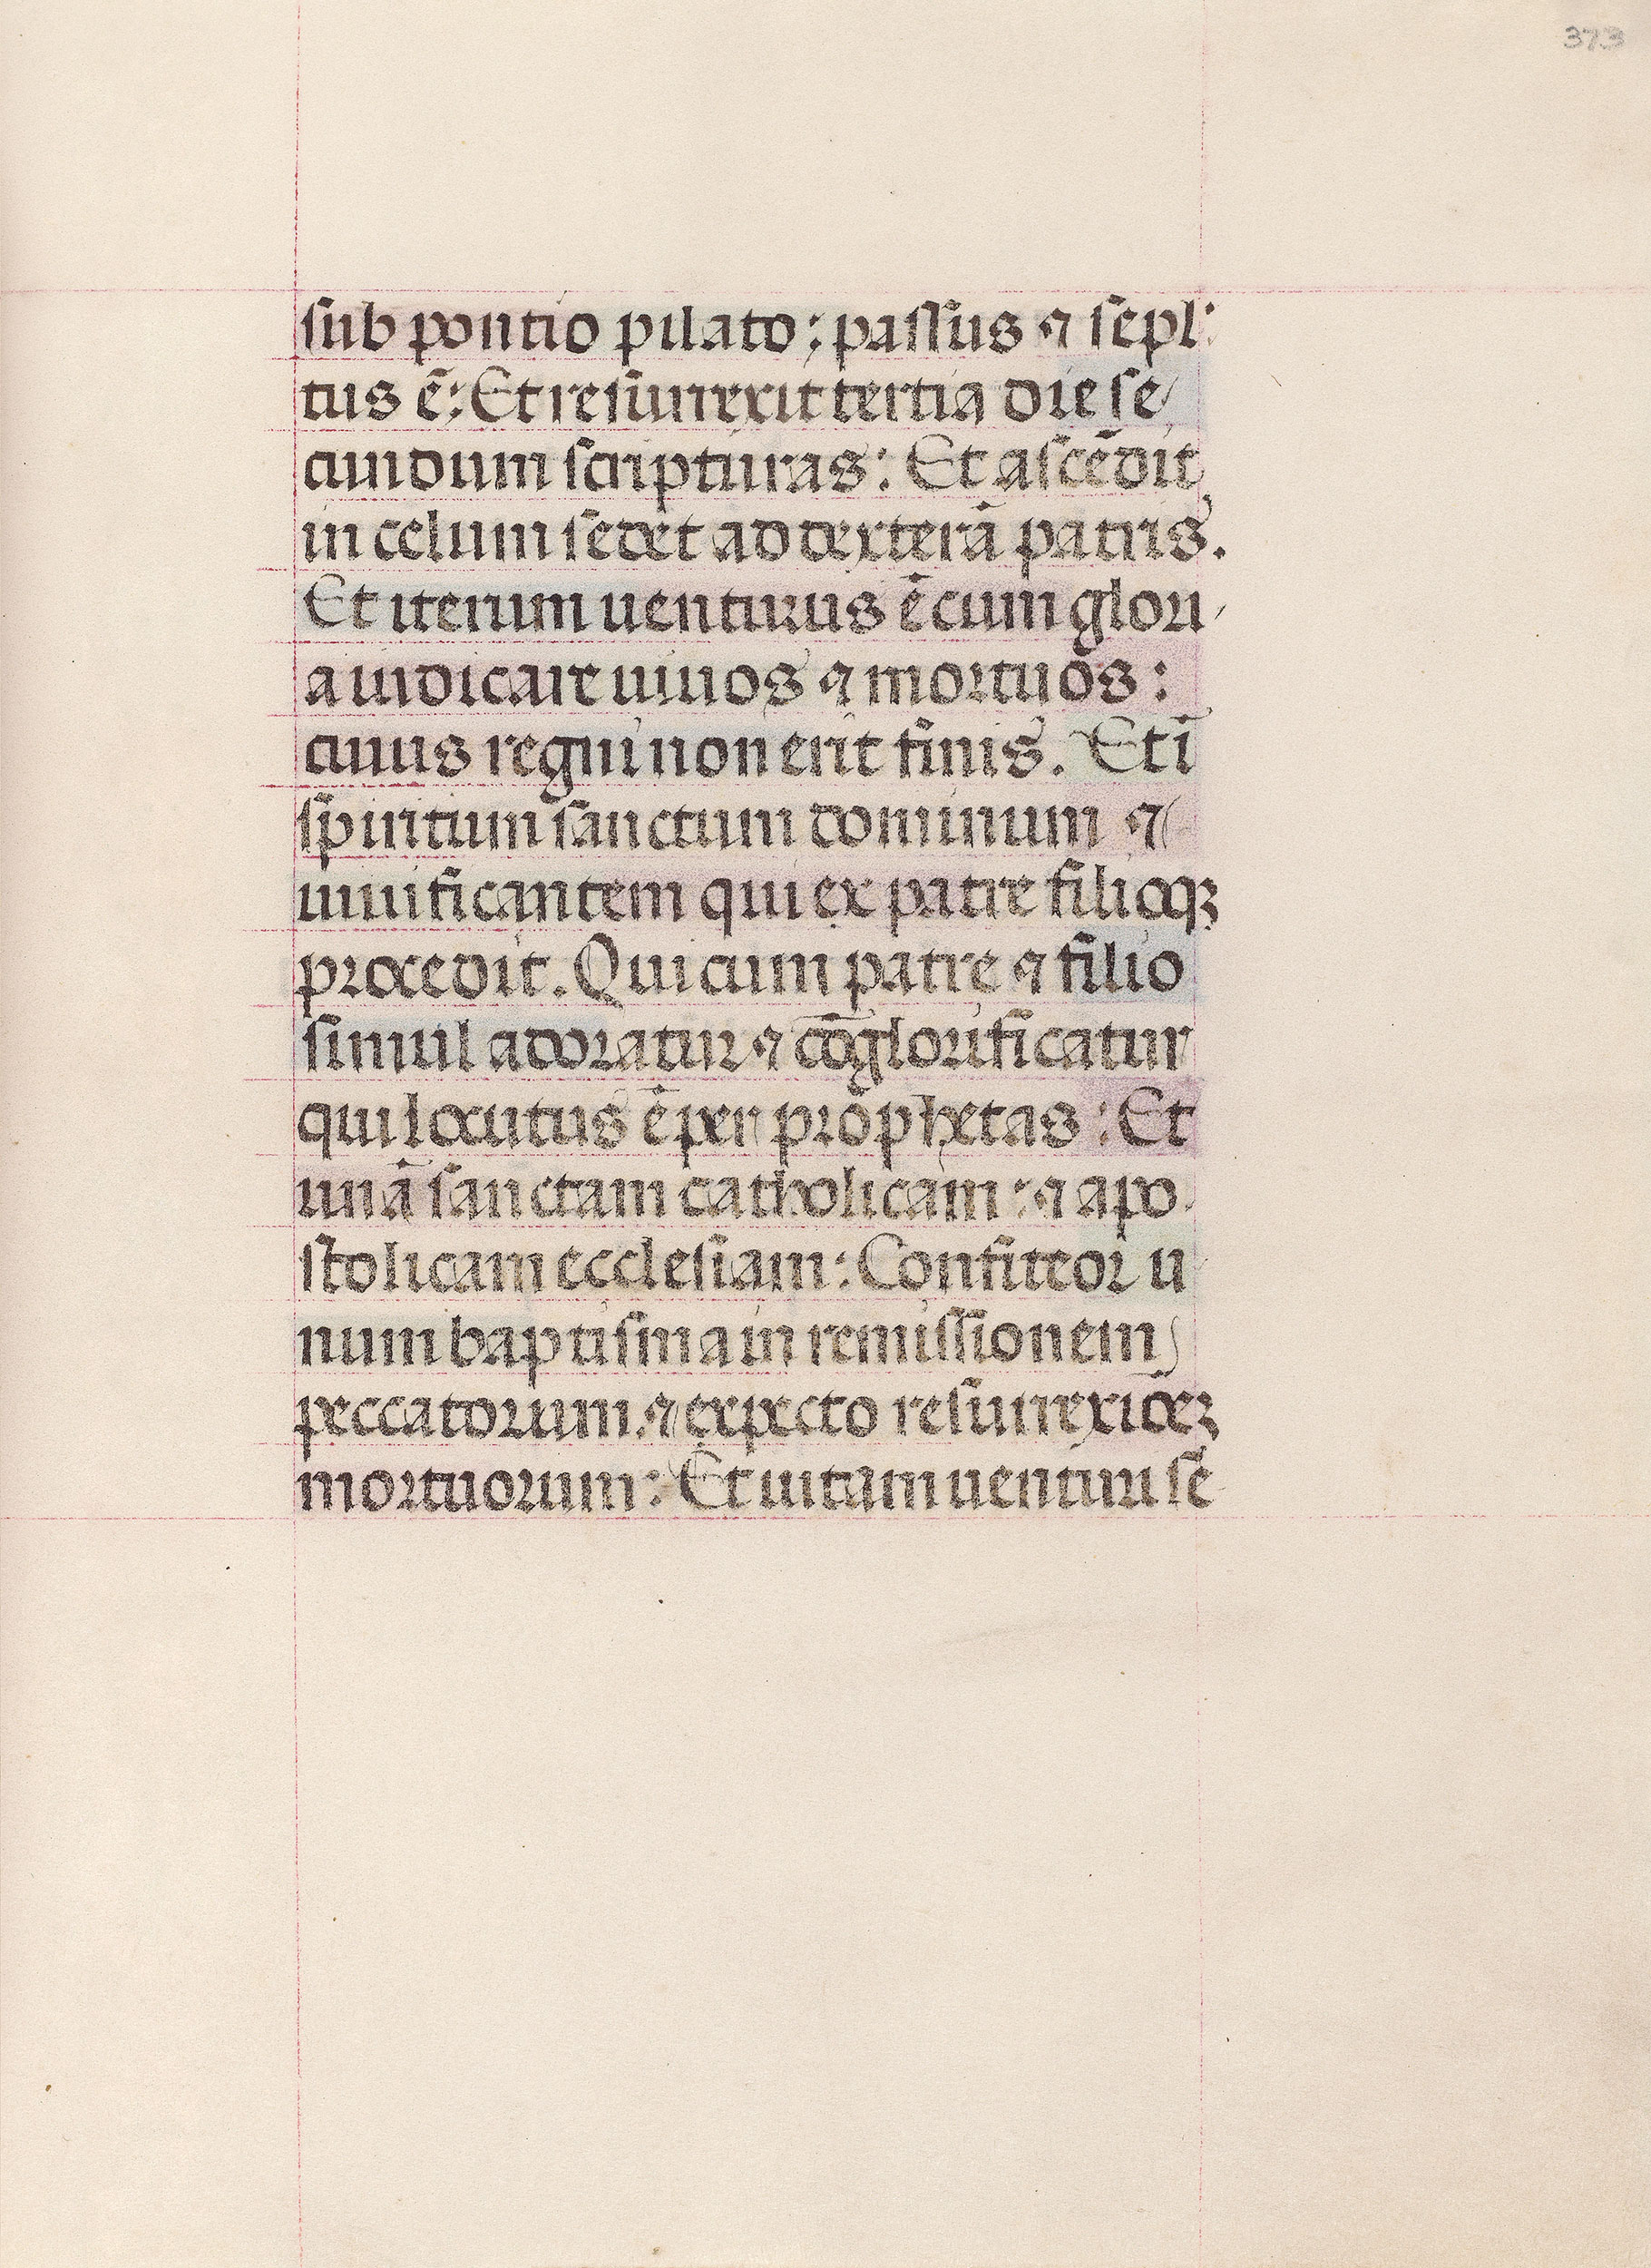 373
sub pontio pilato: passus ⁊ sepl'
tus ē: Et resurrexit tertia die se
cundum scripturas: Et ascēdit
in celum sedet ad dexterā patris.
Et iterum uenturus ē cum glori
a iudicare uiuos ⁊ mortuos:
cuius regni non erit finis. Et ī
spiritum sanctum dominum ⁊
uiuificantem qui ex patre filioqꝫ
procedit. Qui cum patre ⁊ filio
simul adoratur ⁊ cōglorificatur
qui locutus ē per prophetas: Et
unā sanctam catholicam: ⁊ apo
stolicam ecclesiam: Confiteor u
num baptisma in remissionem
peccatorum. ⁊ expecto
mortuorum: Et uitam uenturi se